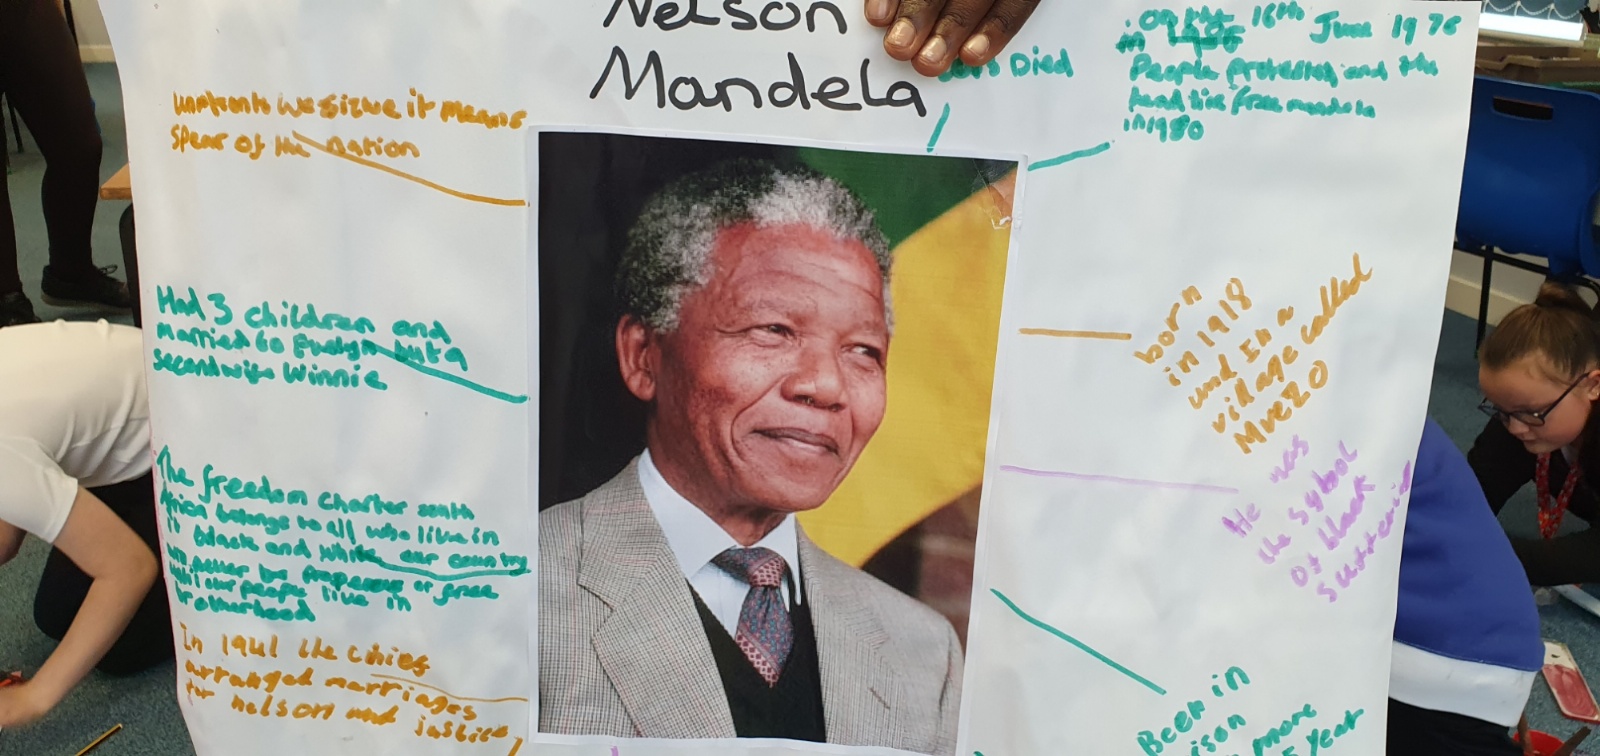 Nelson
Mandela
Died
16th June 1976
in
People protested and the
headline free mandela
in 1980
we sizwe it means
spear of the nation
Had 3 children and
married to Evelyn but a
second wife Winnie
born
in 1918
und In a
village called
Mvezo
The freedom charter south
Africa belongs to all who live in
it black and white our country
will never be prosperous or free
until our people live in
brotherhood
He was
the symbol
of black
In 1941 the chief
arranged marriages
for nelson and justice
Been in
more
year